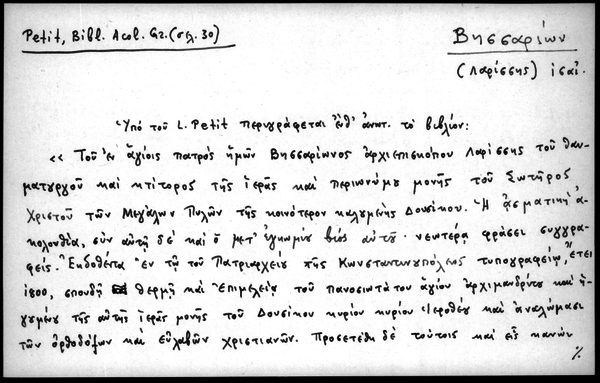 Petit, Bibl. Acol. Gr. (σελ. 30)
Βησσαρίων
(Λαρίσσης) ἰσαπ.
Ὑπό τοῦ L. Petit περιγράφεται ἐνθ' ἀνωτ. τό βιβλίον:
<< Τοῦ ἐν ἁγίοις πατρός ἡμῶν Βησσαρίωνος ἀρχιεπισκόπου Λαρίσσης τοῦ θαυ-
ματουργοῦ καί κτίτορος τῆς ἱερᾶς καί περιωνύμου μονῆς τοῦ Σωτῆρος
Χριστοῦ τῶν Μεγάλων Πυλῶν τῆς κοινότερον καλουμένης Δουσίκου. Ἡ ᾀσματική ἀ-
κολουθία, σύν αὐτῇ δέ καί ὁ μετ' ἐγκωμίου βίος αὐτοῦ· νεωτέρᾳ φράσει συγγρα-
φείς. Ἐκδοθέντα ἐν τῷ τοῦ Πατριαρχείου τῆς Κωνσταντινουπόλεως τυπογραφείῳ, ἔτει
1800, σπουδῇ θερμῇ καί ἐπιμελείᾳ τοῦ πανοσιωτάτου ἁγίου ἀρχιμανδρίτου καί ἡ-
γουμένου τῆς αὐτῆς ἱερᾶς μονῆς τοῦ Δουσίκου κυρίου κυρίου Ἱεροθέου καί ἀναλώμασι
τῶν ὀρθοδόξων καί εὐλαβῶν χριστιανῶν. Προσετέθη δέ τούτοις καί εἷς κανών
./.